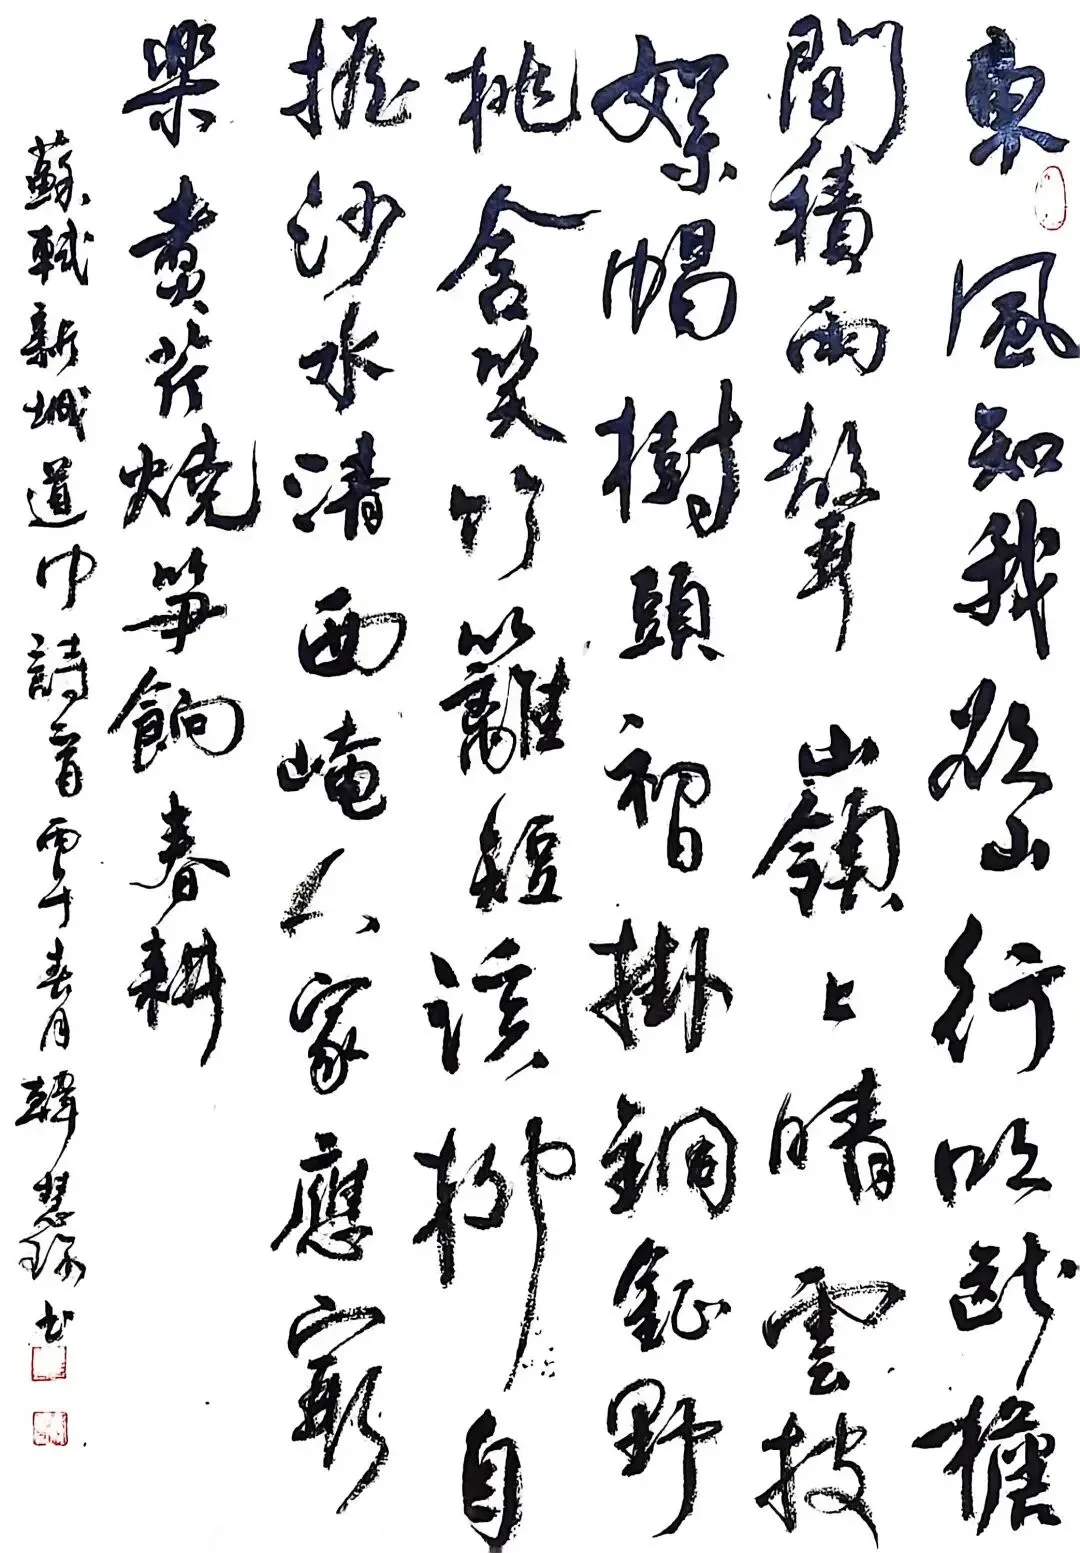 東風知我欲山行吹斷檐
間積雨聲嶺上晴雲披
絮帽樹頭初日掛銅鉦野
桃含笑竹籬短溪柳自
搖沙水清西崦人家應最
樂煮芹燒笋餉春耕
蘇軾新城道中詩一首春月韓慧書